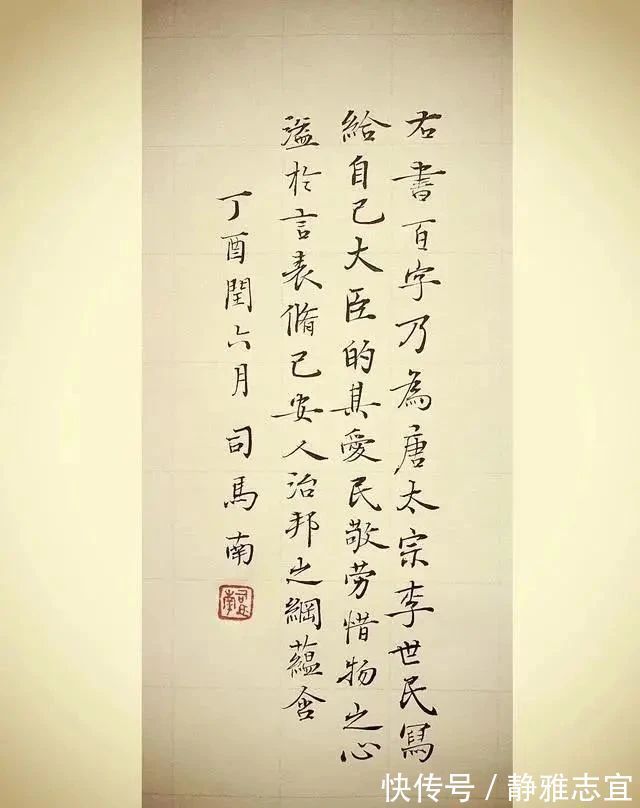 右書百字乃為唐太宗李世民寫
給自己大臣的其愛民敬勞惜物之心
溢於言表脩己安人治邦之綱蘊含
丁酉閏六月司馬南
快传号/静雅志宜